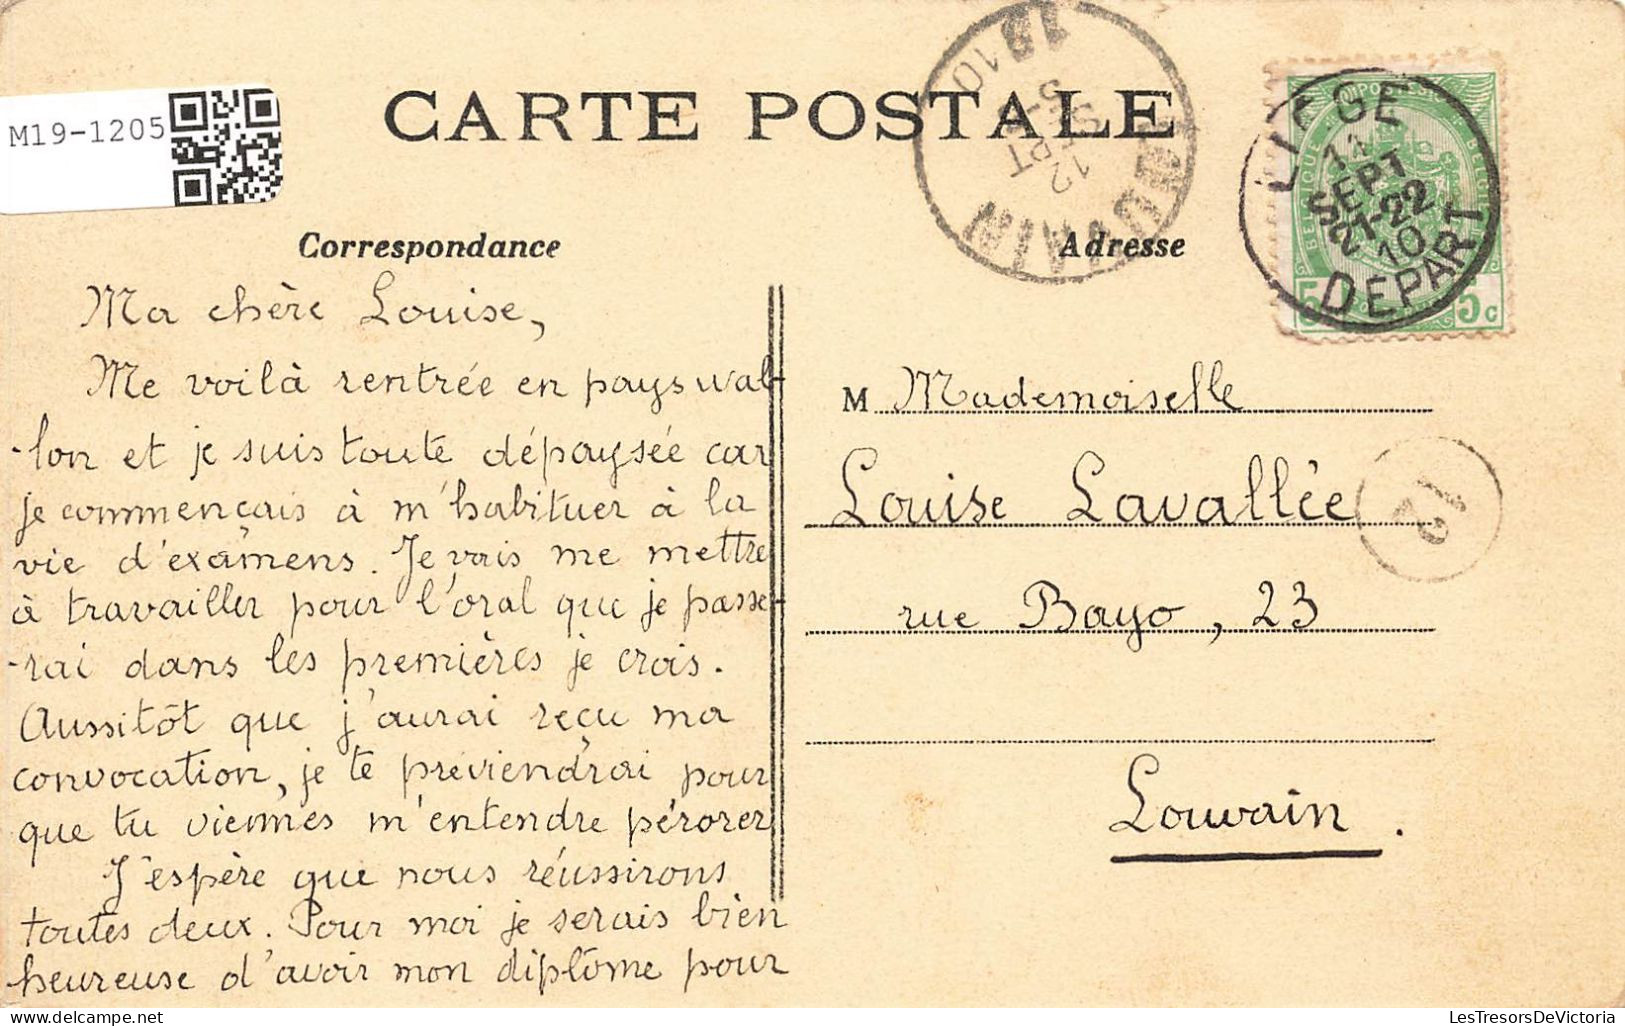 M19-1205
CARTE POSTALE
Correspondance
Adresse
LOUVAIN
12
SEPT
10
LIEGE
11
SEPT
21-22
10
DEPART
BELGIQUE
5c
Ma chère Louise,
Me voilà rentrée en pays wal-
-lon et je suis toute dépaysée car
je commençais à m'habituer à la
vie d'examens. Je vais me mettre
à travailler pour l'oral que je passe-
-rai dans les premières je crois.
Aussitôt que j'aurai reçu ma
convocation, je te préviendrai pour
que tu viennes m'entendre pérorer
J'espère que nous réussirons
toutes deux. Pour moi je serais bien
heureuse d'avoir mon diplôme pour
M Mademoiselle
Louise Lavallée
12
rue Bayo, 23
Louvain.
LesTresorsDeVictoria